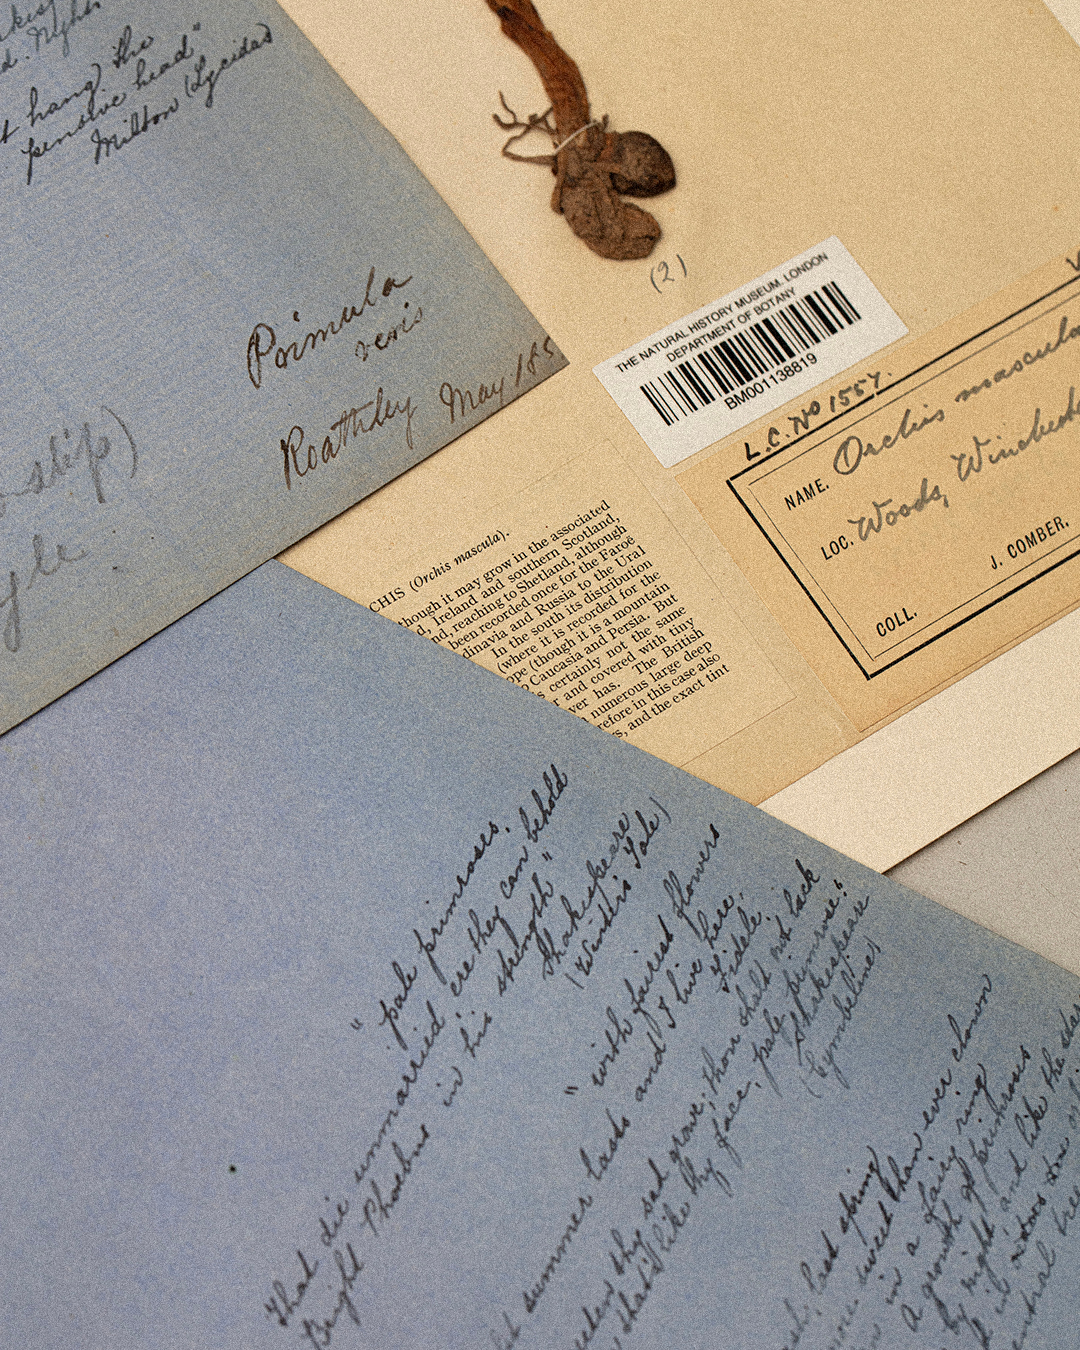 hang the
pensive head"
Milton (Lycidas
Primula
veris
Roathley May 185
(2)
THE NATURAL HISTORY MUSEUM, LONDON
DEPARTMENT OF BOTANY
BM001138819
L.C. No 1557.
NAME. Orchis mascula
LOC. Woods, Winchest
J. COMBER,
COLL.
CHIS (Orchis mascula).
though it may grow in the associated
d, Ireland and southern Scotland,
nd, reaching to Shetland, although
been recorded once for the Faroe
dinavia and Russia to the Ural
In the south its distribution
(where it is recorded for the
ope (though it is a mountain
o Caucasia and Persia. But
s certainly not the same
r and covered with tiny
ver has. The British
n numerous large deep
refore in this case also
s, and the exact tint
"pale primroses,
That die unmarried, ere they can behold
Bright Phoebus in his strength"
Shakespeare
(Winter's Tale)
"with fairest flowers
summer lasts and I live here,
Fidele,
thy sad grave; thou shalt not lack
that's like thy face, pale primrose:
Shakespeare
(Cymbeline)
last spring
sweet than ever clown
in a fairy ring
A growth of primrous
by night and like the star